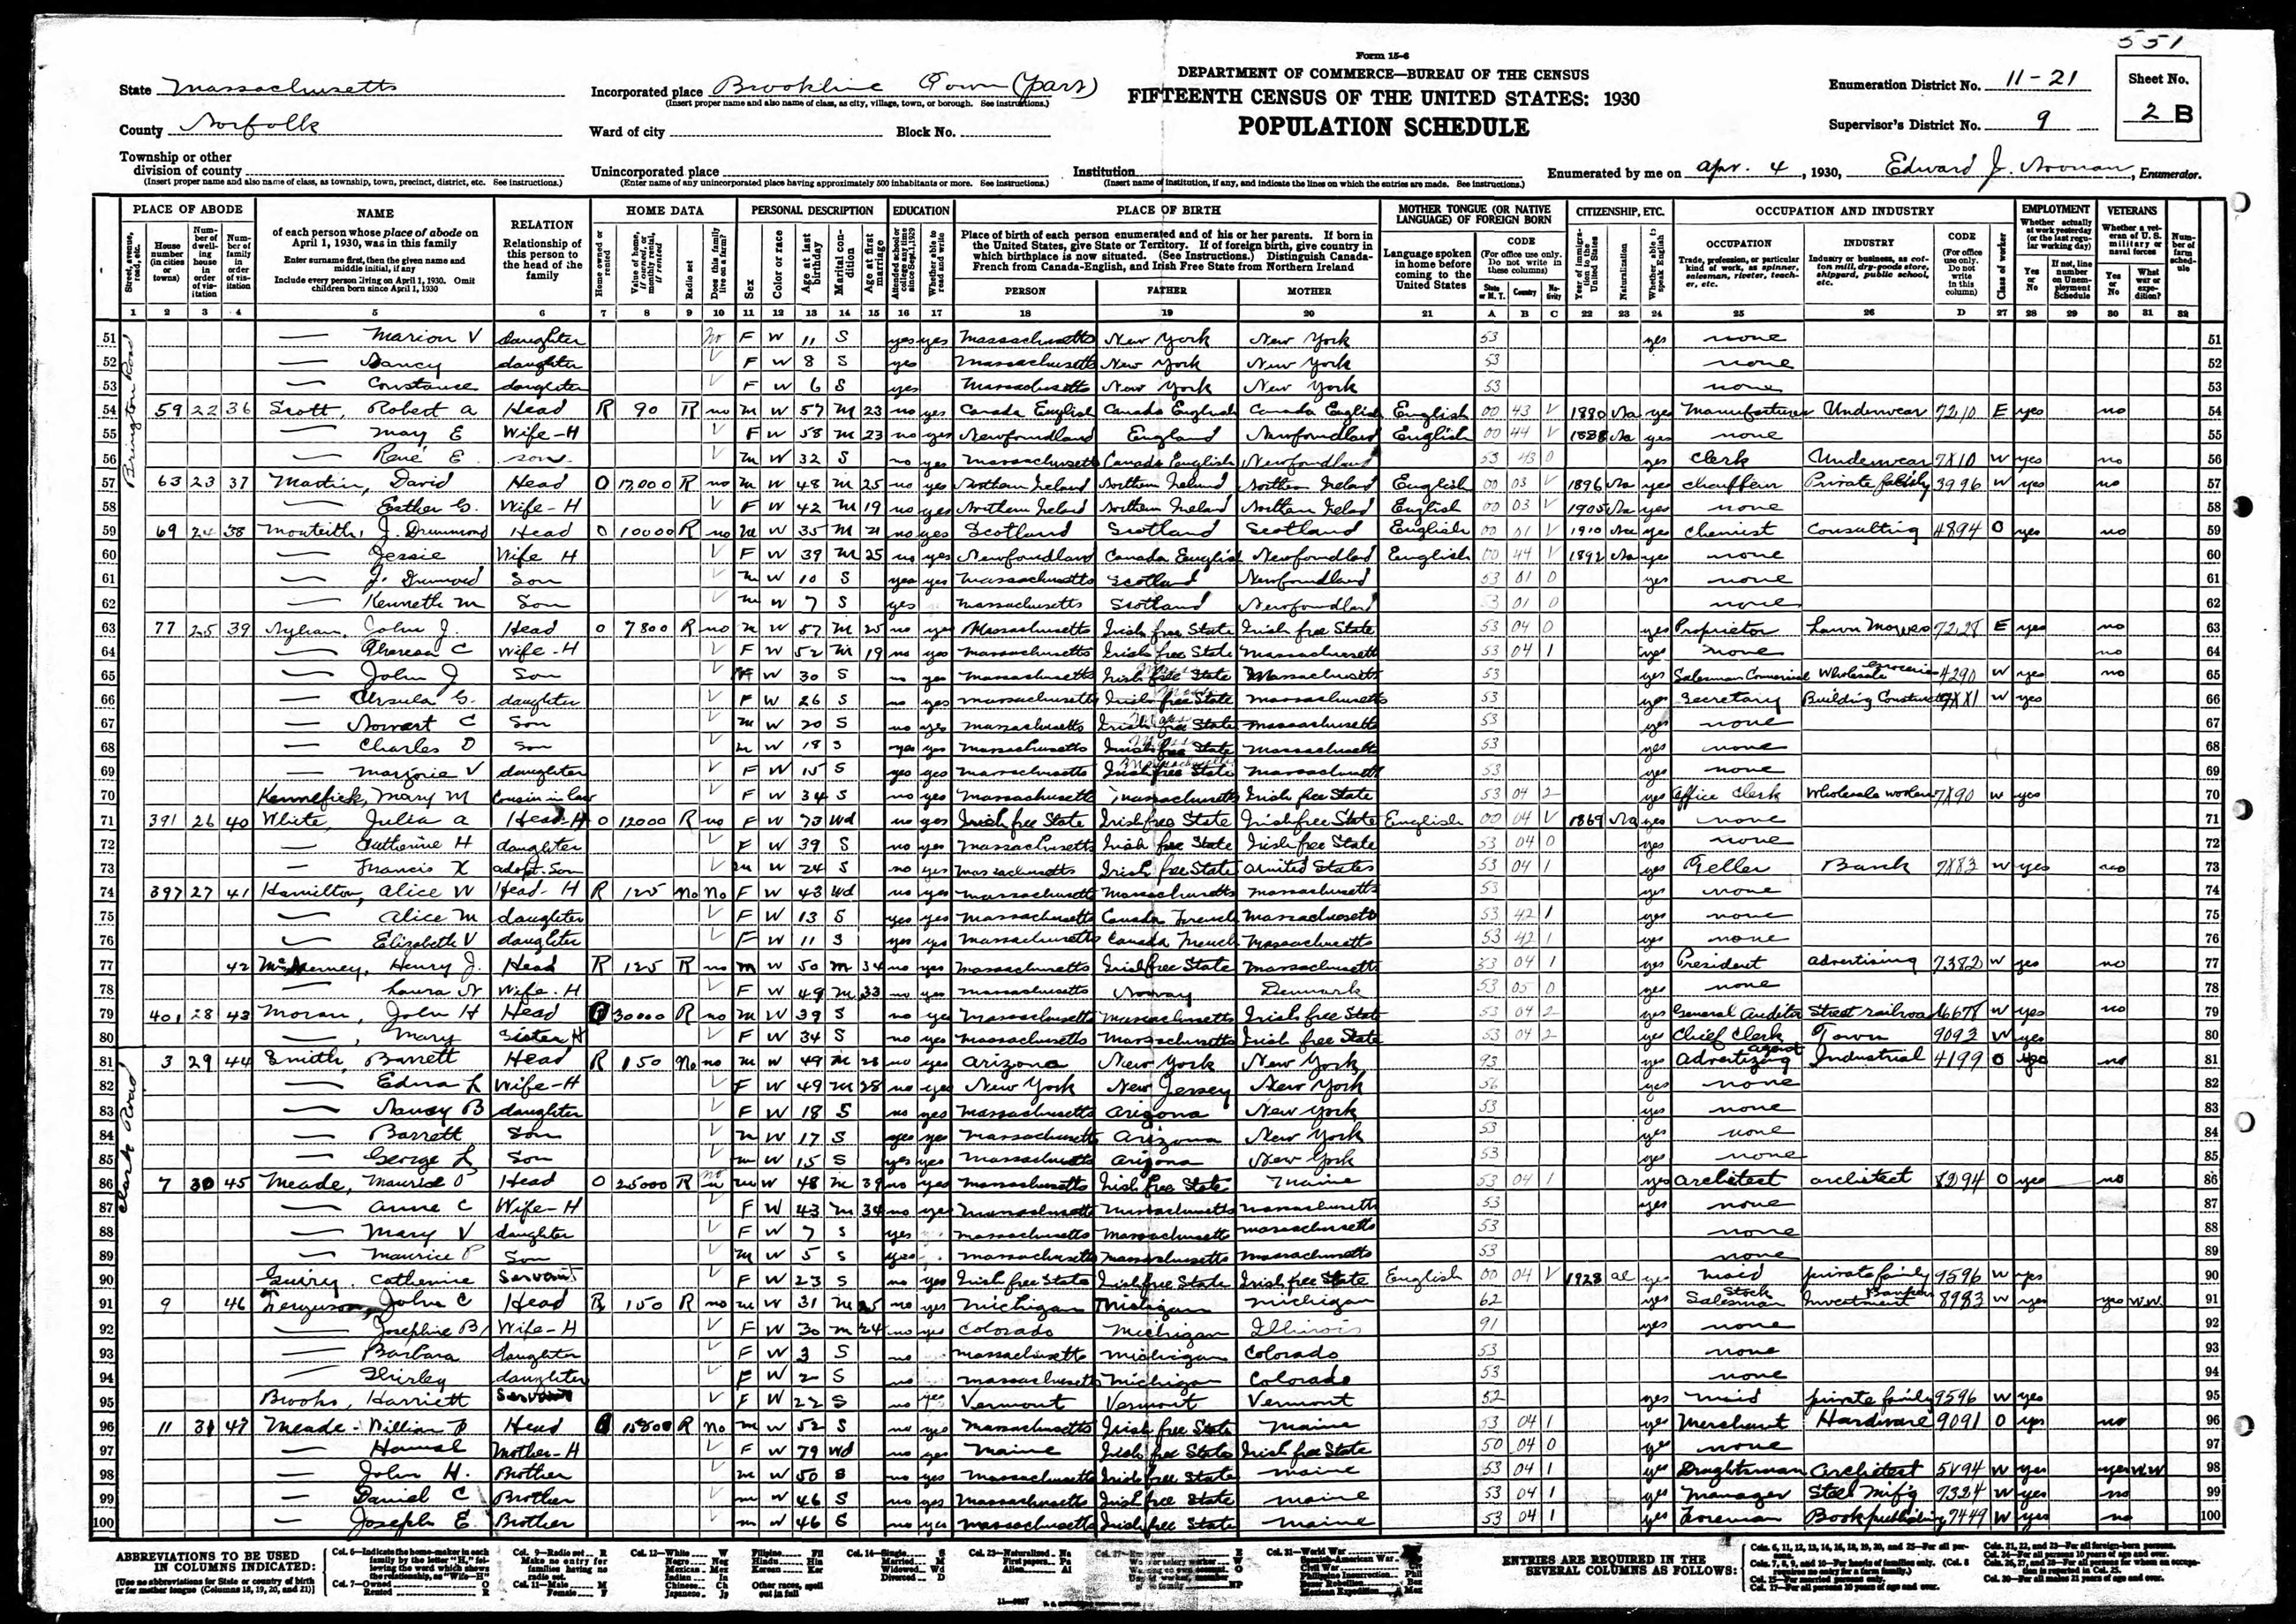 551
Form 15-6
DEPARTMENT OF COMMERCE—BUREAU OF THE CENSUS
FIFTEENTH CENSUS OF THE UNITED STATES: 1930
POPULATION SCHEDULE
State Massachusetts
County Norfolk
Township or other division of county
(Insert proper name and also name of class, as township, town, precinct, district, etc. See instructions.)
Incorporated place Brookline Town (part)
(Insert proper name and also name of class, as city, village, town, or borough. See instructions.)
Ward of city Block No.
Unincorporated place
(Enter name of any unincorporated place having approximately 500 inhabitants or more. See instructions.)
Institution
(Insert name of institution, if any, and indicate the lines on which the entries are made. See instructions.)
Enumeration District No. 11-21
Supervisor's District No. 9
Sheet No. 2 B
Enumerated by me on Apr. 4, 1930, Edward J. Noonan, Enumerator.
PLACE OF ABODE
NAME of each person whose place of abode on April 1, 1930, was in this family
Enter surname first, then the given name and middle initial, if any
Include every person living on April 1, 1930. Omit children born since April 1, 1930
RELATION Relationship of this person to the head of the family
HOME DATA
PERSONAL DESCRIPTION
EDUCATION
PLACE OF BIRTH
Place of birth of each person enumerated and of his or her parents. If born in the United States, give State or Territory. If of foreign birth, give country in which birthplace is now situated. (See Instructions.) Distinguish Canada-French from Canada-English, and Irish Free State from Northern Ireland
PERSON FATHER MOTHER
MOTHER TONGUE (OR NATIVE LANGUAGE) OF FOREIGN BORN
Language spoken in home before coming to the United States
CITIZENSHIP, ETC.
OCCUPATION AND INDUSTRY
EMPLOYMENT
VETERANS
1 2 3 4 5 6 7 8 9 10 11 12 13 14 15 16 17 18 19 20 21 A B C 22 23 24 25 26 D 27 28 29 30 31 32
51 — Marion V daughter No F W 11 S yes yes Massachusetts New York New York 53 yes none 51
52 — Nancy daughter F W 8 S yes Massachusetts New York New York 53 none 52
53 — Constance daughter F W 6 S yes Massachusetts New York New York 53 none 53
54 59 22 36 Scott, Robert A Head R 90 R no M W 57 M 23 no yes Canada English Canada English Canada English English 00 43 V 1880 Na yes Manufacturer Underwear 7210 E yes no 54
55 — May E Wife-H F W 58 M 23 no yes Newfoundland England Newfoundland English 00 44 V 1888 Na yes none 55
56 — René E son M W 32 S no yes Massachusetts Canada English Newfoundland 53 43 0 yes Clerk Underwear 7X10 W yes no 56
57 63 23 37 Martin, David Head O 12000 R no M W 48 M 25 no yes Northern Ireland Northern Ireland Northern Ireland English 00 03 V 1896 Na yes Chauffeur Private family 3996 W yes no 57
58 — Esther G. Wife-H F W 42 M 19 no yes Northern Ireland Northern Ireland Northern Ireland English 00 03 V 1905 Na yes none 58
59 69 24 38 Monteith, J. Drummond Head O 10000 R no M W 35 M 21 no yes Scotland Scotland Scotland English 00 01 V 1910 Na yes Chemist Consulting 4894 O yes no 59
60 — Jessie Wife H F W 39 M 25 no yes Newfoundland Canada English Newfoundland English 00 44 V 1892 Na yes none 60
61 — J. Drumond Son M W 10 S yes yes Massachusetts Scotland Newfoundland 53 01 0 yes none 61
62 — Kenneth M Son M W 7 S yes Massachusetts Scotland Newfoundland 53 01 0 none 62
63 77 25 39 John J. Head O 7800 R no M W 57 M 25 no yes Massachusetts Irish free State Irish free State 53 04 0 yes Proprietor Lawn Mowers 7228 E yes no 63
64 — Theresa C Wife-H F W 52 M 19 no yes Massachusetts Irish free State Massachusetts 53 04 1 yes none no 64
65 — John J Son M W 30 S no yes Massachusetts Irish free State Massachusetts 53 yes Salesman Comercial Wholesale Groceries 4290 W yes no 65
66 — Ursula G. daughter F W 26 S no yes Massachusetts Irish free State Massachusetts 53 yes Secretary Building Construction 7XX1 W yes 66
67 — C Son M W 20 S no yes Massachusetts Irish free State Massachusetts 53 yes none 67
68 — Charles D Son M W 18 S yes yes Massachusetts Irish free State Massachusetts 53 yes none 68
69 — Marjorie V daughter F W 15 S yes yes Massachusetts Irish free State Massachusetts 53 yes none 69
70 Kennefick, Mary M Cousin in law F W 34 S no yes Massachusetts Massachusetts Irish free State 53 04 2 yes Office Clerk Wholesale woolen 7X90 W yes 70
71 391 26 40 White, Julia A Head-H O 12000 R no F W 73 Wd no yes Irish free State Irish free State Irish free State English 00 04 V 1869 Na yes none 71
72 — Catherine H daughter F W 39 S no yes Massachusetts Irish free State Irish free State 53 04 0 yes none 72
73 — Francis X adopt. Son M W 24 S no yes Massachusetts Irish free State United States 53 04 1 yes Teller Bank 7X83 W yes no 73
74 397 27 41 Hamilton, Alice W Head-H R 125 No No F W 43 Wd no yes Massachusetts Massachusetts Massachusetts 53 yes none 74
75 — Alice M daughter F W 13 S yes yes Massachusetts Canada French Massachusetts 53 42 1 yes none 75
76 — Elizabeth V daughter F W 11 S yes yes Massachusetts Canada French Massachusetts 53 42 1 yes none 76
77 42 Henry J. Head R 125 R no M W 50 M 34 no yes Massachusetts Irish free State Massachusetts 53 04 1 yes President Advertising 7382 W yes no 77
78 — Laura N Wife-H F W 49 M 33 no yes Massachusetts Norway Denmark 53 05 0 yes none 78
79 401 28 43 Moran, John H Head O 30000 R no M W 39 S no yes Massachusetts Massachusetts Irish free State 53 04 2 yes General Auditor Street railroad 6678 W yes no 79
80 —, Mary Sister H F W 34 S no yes Massachusetts Massachusetts Irish free State 53 04 2 yes Chief Clerk Town 9093 W yes 80
81 3 29 44 Smith, Barrett Head R 150 No no M W 49 M 28 no yes Arizona New York New York 93 yes Advertizing agent Industrial 4199 O yes no 81
82 — Edna L Wife-H F W 49 M 28 no yes New York New Jersey New York 56 yes none 82
83 — Nancy B daughter F W 18 S no yes Massachusetts Arizona New York 53 yes none 83
84 — Barrett Son M W 17 S yes yes Massachusetts Arizona New York 53 yes none 84
85 — George L Son M W 15 S yes yes Massachusetts Arizona New York 53 yes none 85
86 7 30 45 Meade, Maurice P Head O 25000 R no M W 48 M 39 no yes Massachusetts Irish free State Maine 53 04 1 yes Architect Architect 8294 O yes no 86
87 — Anne C Wife-H F W 43 M 34 no yes Massachusetts Massachusetts Massachusetts 53 yes none 87
88 — Mary V daughter F W 7 S yes Massachusetts Massachusetts Massachusetts 53 none 88
89 — Maurice P Son M W 5 S yes Massachusetts Massachusetts Massachusetts 53 none 89
90 Guiry, Catherine Servant F W 23 S no yes Irish free State Irish free State Irish free State English 00 04 V 1928 al yes maid private family 9596 W yes 90
91 9 46 Ferguson, John C Head R 150 R no M W 31 M 25 no yes Michigan Michigan Michigan 62 yes Stock Salesman Investment Bankers 8983 W yes yes WW 91
92 — Josephine B Wife-H F W 30 M 24 no yes Colorado Michigan Illinois 91 yes none 92
93 — Barbara daughter F W 3 S no Massachusetts Michigan Colorado 53 none 93
94 — Shirley daughter F W 2 S no Massachusetts Michigan Colorado 53 none 94
95 Brooks, Harriett Servant F W 22 S no yes Vermont Vermont Vermont 52 yes maid private family 9596 W yes 95
96 11 31 47 Meade- William P Head O R No M W 52 S no yes Massachusetts Irish free State Maine 53 04 1 yes Merchant Hardware 9091 O yes no 96
97 — Hannah Mother-H F W 79 Wd no yes Maine Irish free State Irish free State 50 04 0 yes none 97
98 — John H. Brother M W 50 S no yes Massachusetts Irish free State Maine 53 04 1 yes Draughtsman Architect 5V94 W yes yes WW 98
99 — Daniel C Brother M W 46 S no yes Massachusetts Irish free State Maine 53 04 1 yes Manager Steel Mf'g 7324 W yes no 99
100 — Joseph E. Brother M W 46 S no yes Massachusetts Irish free State Maine 53 04 1 yes Foreman Book publishing 7449 W yes no 100
Clark Road
ABBREVIATIONS TO BE USED IN COLUMNS INDICATED:
[Use no abbreviations for State or country of birth or for mother tongue (Columns 18, 19, 20, and 21)]
ENTRIES ARE REQUIRED IN THE SEVERAL COLUMNS AS FOLLOWS: